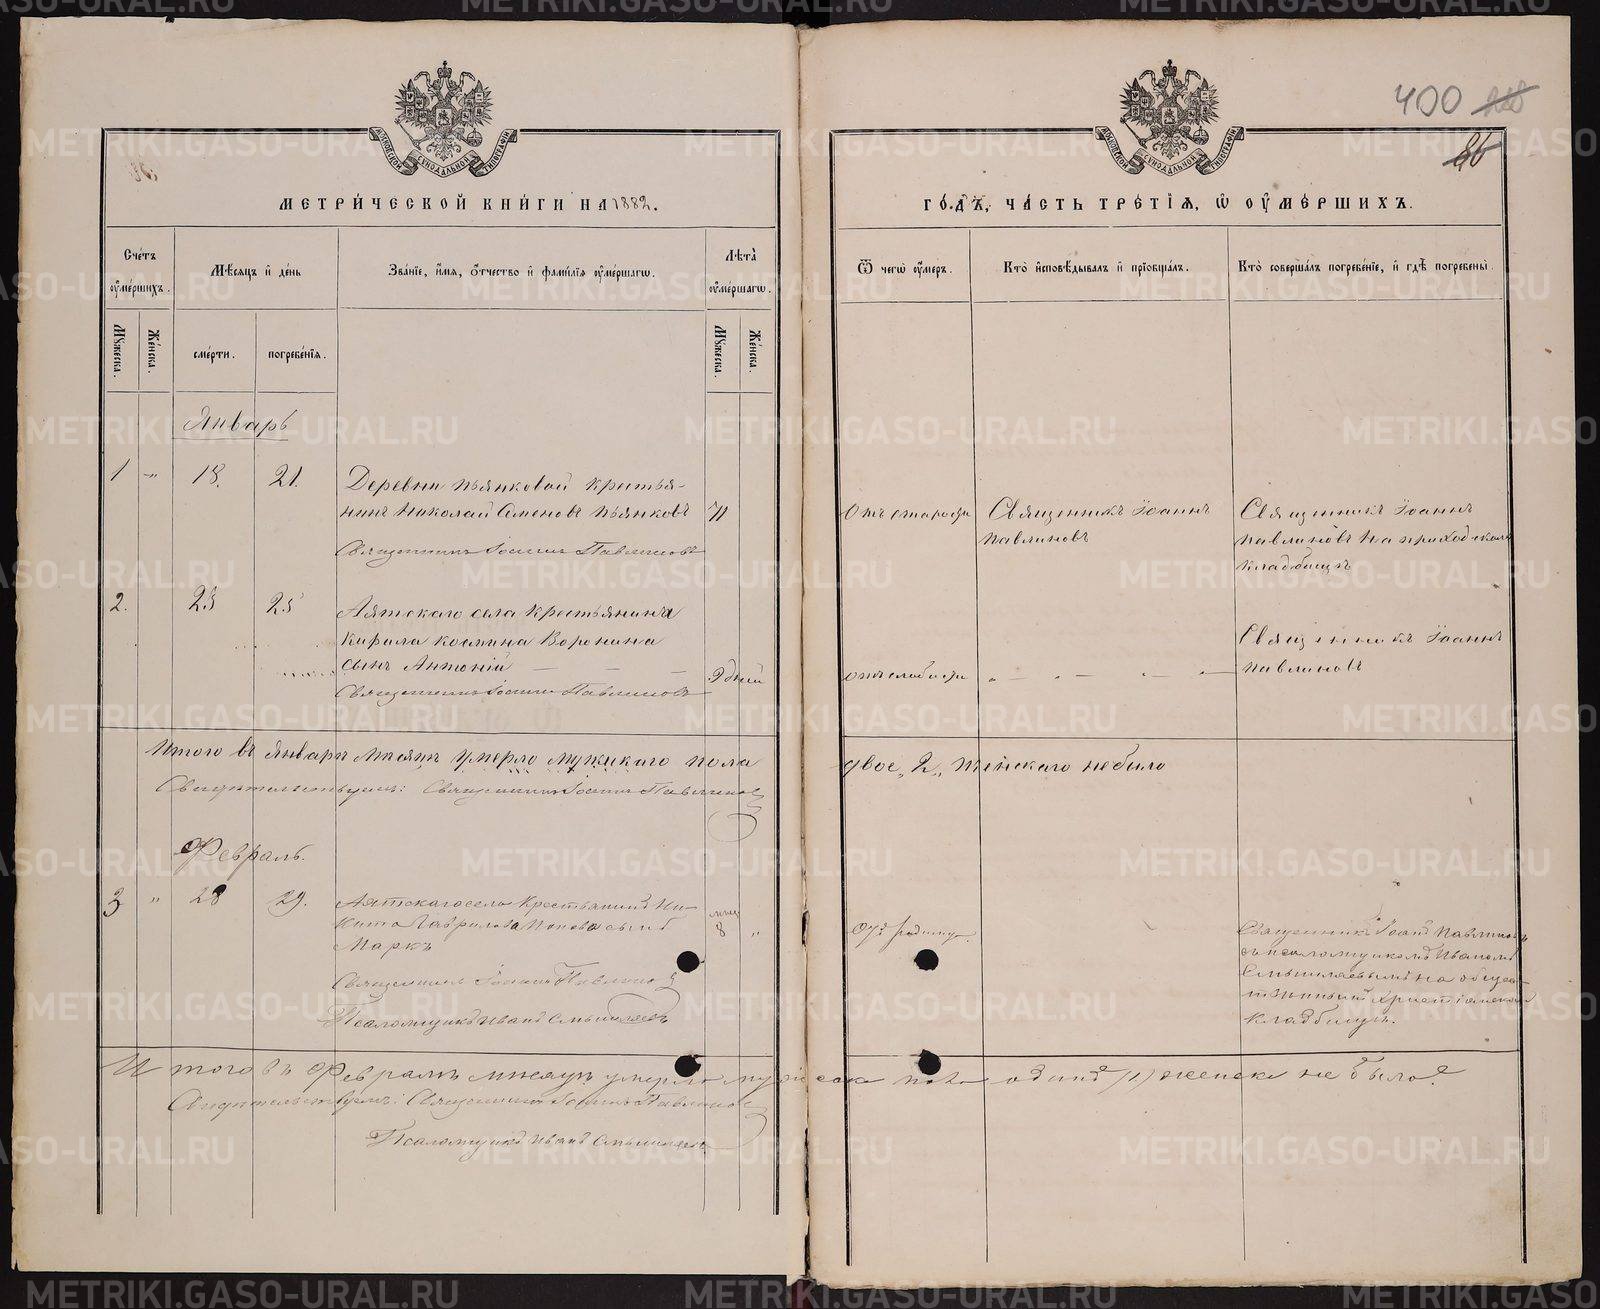 400 228
86
МОСКОВСКОЙ СѴНОДАЛЬНОЙ ТИПОГРАФІИ
МЕТРИ́ЧЕСКОЙ КНИ́ГИ НА 1882.
Сче́тъ оу҆ме́ршихъ.
Мѣ́сяцъ и҆ де́нь
Зва́нїе, и҆́мя, ѻ҆́тчество и҆ фами́лїя оу҆ме́ршагѡ.
Лѣ́та оу҆ме́ршагѡ.
Мꙋ́жеска.
Же́нска.
сме́рти.
погребе́нїя.
Мꙋ́жеска.
Же́нска.
Январь
1 " 18. 21. Деревни Пьянковой крестья-
нинъ Николай Семеновъ Пьянковъ 71
Священникъ Іоаннъ Павлиновъ
2. 23 25 Аятскаго села крестьянина
Кирила Козмина Воронина
сынъ Антоній — — — 9 дней
Священникъ Іоаннъ Павлиновъ
Итого въ Январѣ мѣсяцѣ умерло мужскаго пола
Свидѣтельствуемъ: Священникъ Іоаннъ Павлиновъ
Февраль.
3 " 28 29. Аятскаго села крестьянина Ни-
кита Гаврилова Попова сынъ мѣс. 8 "
Маркъ
Священникъ Іоаннъ Павлиновъ
Псаломщикъ Иванъ Смышляевъ
Итого въ Февралѣ мѣсяцѣ умерло мужеска пола одинъ (1) женска не было.
Свидѣтельствуемъ: Священникъ Іоаннъ Павлиновъ
Псаломщикъ Иванъ Смышляевъ
МОСКОВСКОЙ СѴНОДАЛЬНОЙ ТИПОГРАФІИ
ГО́ДЪ, ЧА́СТЬ ТРЕ́ТЇЯ, Ѡ҆ ОУ҆МЕ́РШИХЪ.
Ѿ чегѡ̀ оу҆́меръ.
Кто̀ и҆сповѣ́дывалъ и҆ прїобща́лъ.
Кто̀ соверша́лъ погребе́нїе, и҆ гдѣ̀ погребены̀.
Отъ старости
Священникъ Іоаннъ
Павлиновъ
Священникъ Іоаннъ
Павлиновъ на приходскомъ
кладбищѣ
отъ слабости " — " — " —
Священникъ Іоаннъ
Павлиновъ
двое „2„ Женскаго не было
Отъ родимца.
Священникъ Іоаннъ Павлиновъ
съ псаломщикомъ Иваномъ
Смышляевымъ на общес-
твенномъ христіанском
кладбищѣ.
METRIKI.GASO-URAL.RU